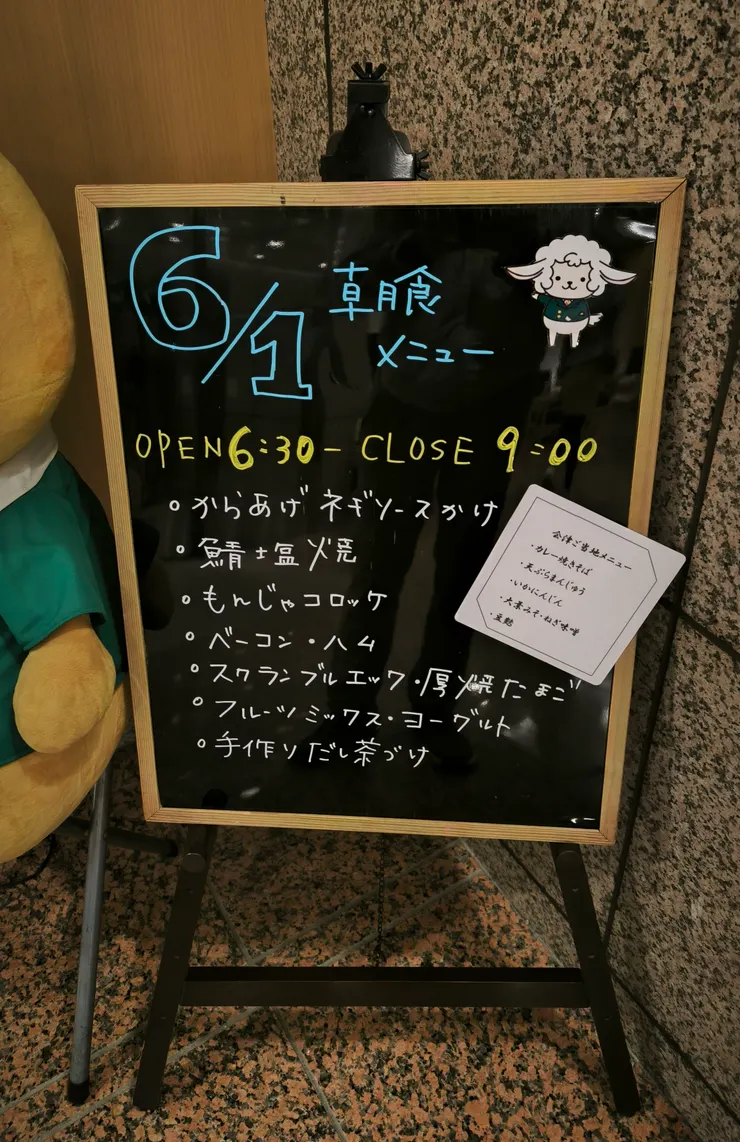 6/1 朝食
メニュー
OPEN 6:30 - CLOSE 9:00
○からあげ ネギソースかけ
○鯖士塩焼
○もんじゃコロッケ
○ベーコン・ハム
○スクランブルエック・厚焼たまご
○フルーツミックス・ヨーグルト
○手作りだし茶づけ
会津ご当地メニュー
・カレー焼きそば
・天ぷらまんじゅう
・いかにんじん
・大葉みそ・ねぎ味噌